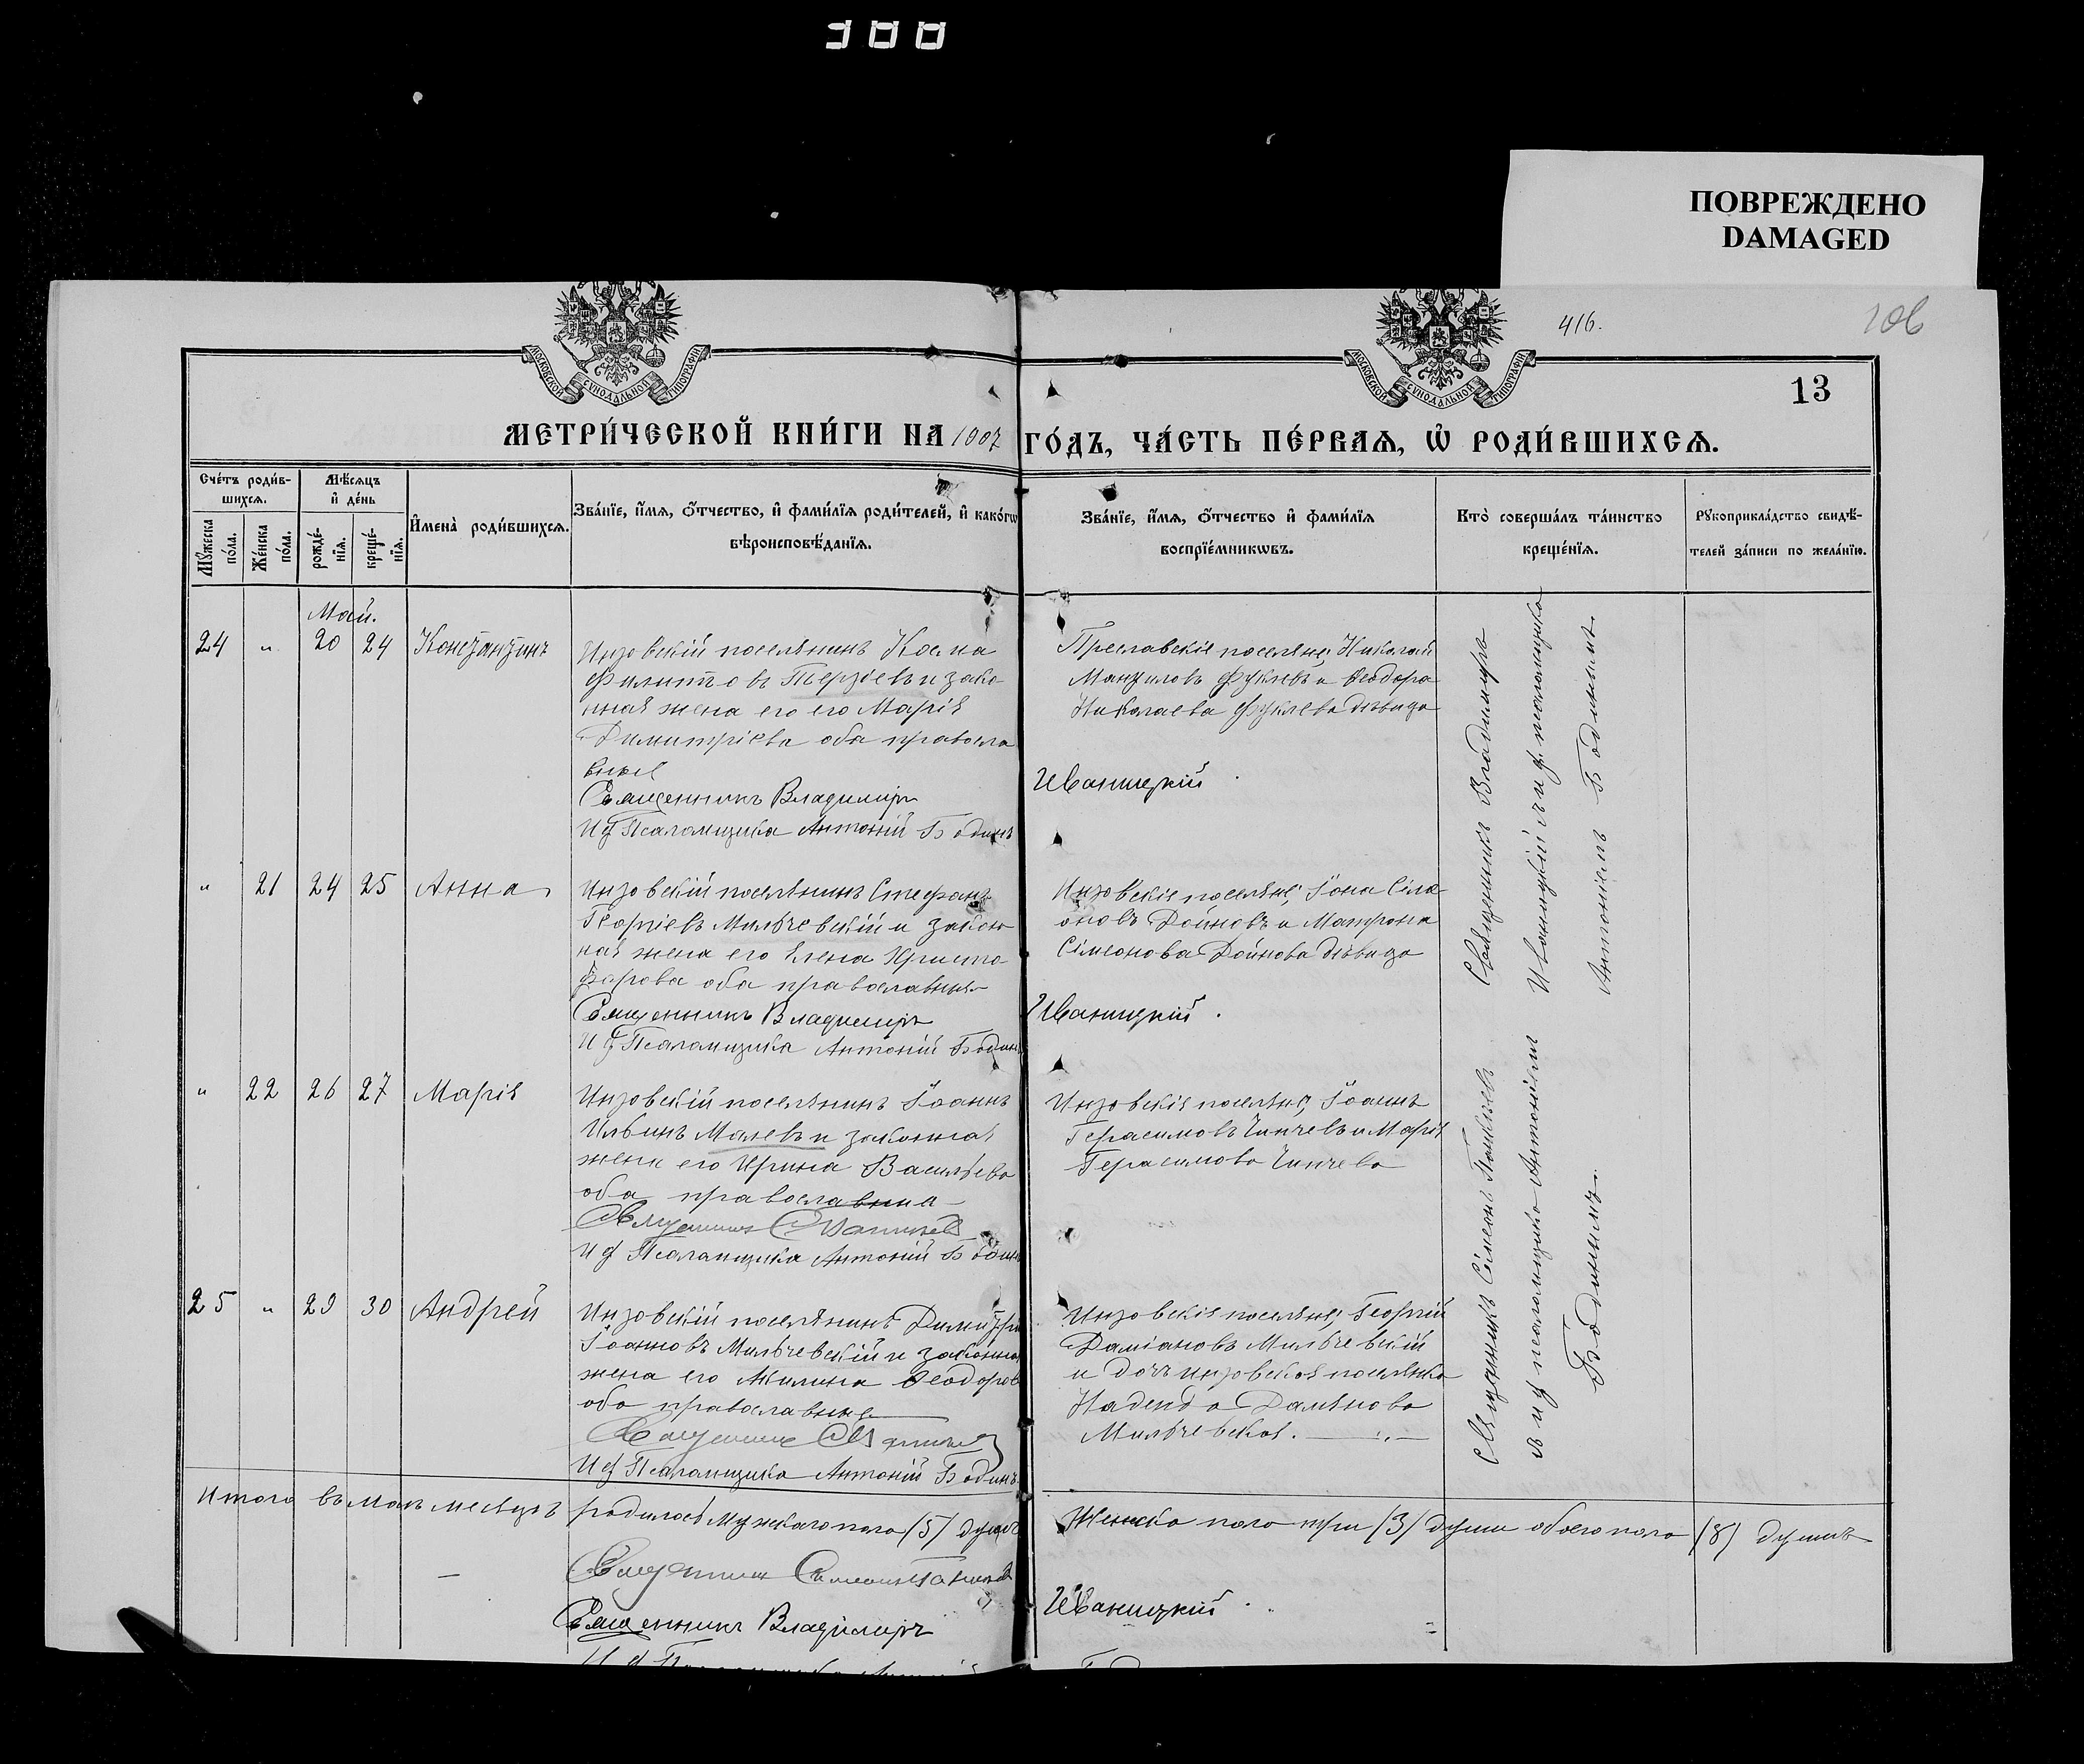 ПОВРЕЖДЕНО
DAMAGED
416.
106
13
МОСКОВСКОЙ СѴНОДАЛЬНОЙ ТИПОГРАФІИ
МОСКОВСКОЙ СѴНОДАЛЬНОЙ ТИПОГРАФІИ
МЕТРИ́ЧЕСКОЙ КНИ́ГИ НА 1907 ГО́ДЪ, ЧА́СТЬ ПЕ́РВАѦ, Ѡ҆ РОДИ́ВШИХСѦ.
Сче́тъ роди́в-
шихсѧ.
Мꙋ́жеска по́ла.
Же́нска по́ла.
Мѣ́сѧцъ
и҆ де́нь
рожде́-
нїѧ.
креще́-
нїѧ.
И҆мена̀ роди́вшихсѧ.
Зва́нїе, и҆́мѧ, ѻ҆́тчество, и҆ фами́лїѧ роди́телей, и҆ како́гѡ
вѣроисповѣ́данїѧ.
Зва́нїе, и҆́мѧ, ѻ҆́тчество и҆ фами́лїѧ
воспрїе́мникѡвъ.
Кто̀ соверша́лъ та́инство
креще́нїѧ.
Рꙋкоприкла́дство свидѣ́-
телей за́писи по жела́нїю.
Май.
24 " 20 24 Константинъ
Инзовскій поселянинъ Косма
Филиповъ Терзіевъ и зако-
нная жена его его Марія
Димитріева оба правосла
вные
Священникъ Владимиръ Иваницкій
И ф Псаломщика Антоній Бодинъ
Преславскіе поселяне, Николай
Мануиловъ Фуклевъ и Ѳеодора
Николаева Фуклева дѣвица
Священникъ Владимиръ
Иваницкій съ и ф. псаломщика
Антоніемъ Бодинымъ.
" 21 24 25 Анна
Инзовскій поселянинъ Стефанъ
Георгіевъ Мильчевскій и закон
ная жена его Елена Христо
форова оба православные
Священникъ Владимиръ Иваницкій
И ф Псаломщика Антоній Бодинъ
Инзовскіе поселяне, Іона Симе
оновъ Дойновъ и Матрона
Симеонова Дойнова дѣвица
" 22 26 27 Марія
Инзовскій поселянинъ Іоаннъ
Ильинъ Малевъ и законная
жена его Ирина Васильева
оба православные
Священникъ
И ф Псаломщика Антоній Бодинъ
Инзовскіе поселяне, Іоаннъ
Герасимовъ Чипчевъ и Марія
Герасимова Чипчева
Священникъ Симеонъ
съ и ф псаломщика Антоніемъ
Бодинымъ.
25 " 29 30 Андрей
Инзовскій поселянинъ Димитрій
Іоанновъ Мильчевскій и законная
жена его Акилина Ѳеодорова
оба православные
Священникъ
И ф Псаломщика Антоній Бодинъ
Инзовскіе поселяне, Георгій
Даміановъ Мильчевскій
и дочь инзовская поселянка
Надежда Дамянова
Мильчевская.
Итого въ маѣ месяцѣ родилось мужскаго пола (5) душъ Женска пола три (3) души обоего пола (8) душъ
Священникъ Симеонъ
Священникъ Владимиръ Иваницкій